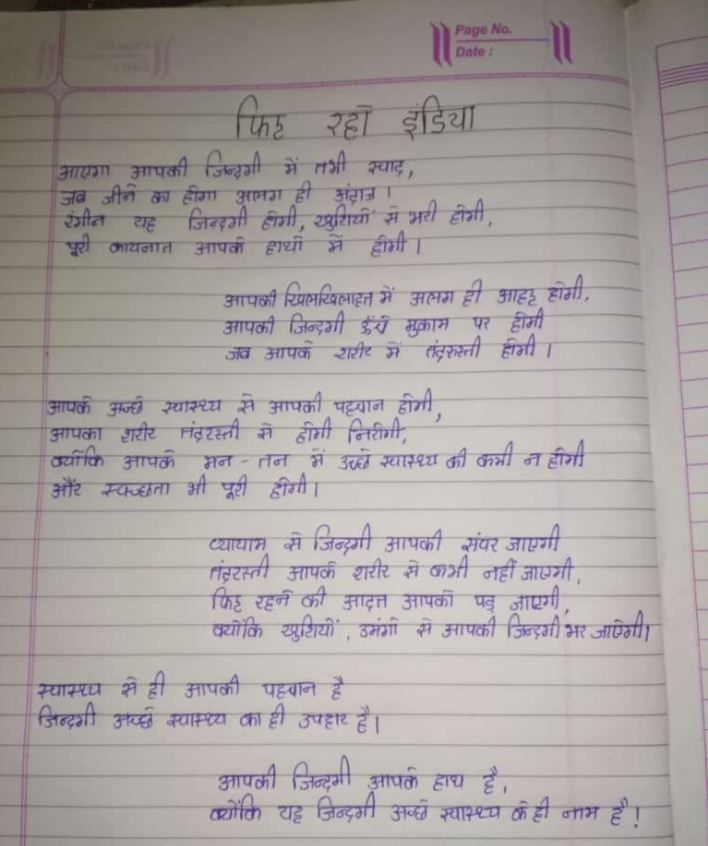 Page No.
Date :
फिट रहो इंडिया
आएगा आपकी जिन्दगी में तभी स्वाद,
जब जीने का होगा अलग ही अंदाज।
रंगीन यह जिन्दगी होगी, खुशियों से भरी होगी,
पूरी कायनात आपके हाथों में होगी।
आपकी खिलखिलाहत में अलग ही आहट होगी,
आपकी जिन्दगी ऊँचे मुकाम पर होगी
जब आपके शरीर में तंदरुस्ती होगी।
आपके अच्छे स्वास्थ्य से आपकी पहचान होगी,
आपका शरीर तंदरस्ती से होगी निरोगी,
क्योंकि आपके मन - तन में उच्छे स्वास्थ्य की कमी न होगी
और स्वच्छता भी पूरी होगी।
व्यायाम से जिन्दगी आपकी संवर जाएगी
तंदरस्ती आपके शरीर से कभी नहीं जाएगी,
फिट रहने की आदत आपको पड़ जाएगी,
क्योंकि खुशियों, उमंगो से आपकी जिन्दगी भर जाऐगी।
स्वास्थ्य से ही आपकी पहचान है
जिन्दगी अच्छे स्वास्थ्य का ही उपहार है।
आपकी जिन्दगी आपके हाथ है,
क्योंकि यह जिन्दगी अच्छे स्वास्थ्य के ही नाम है!